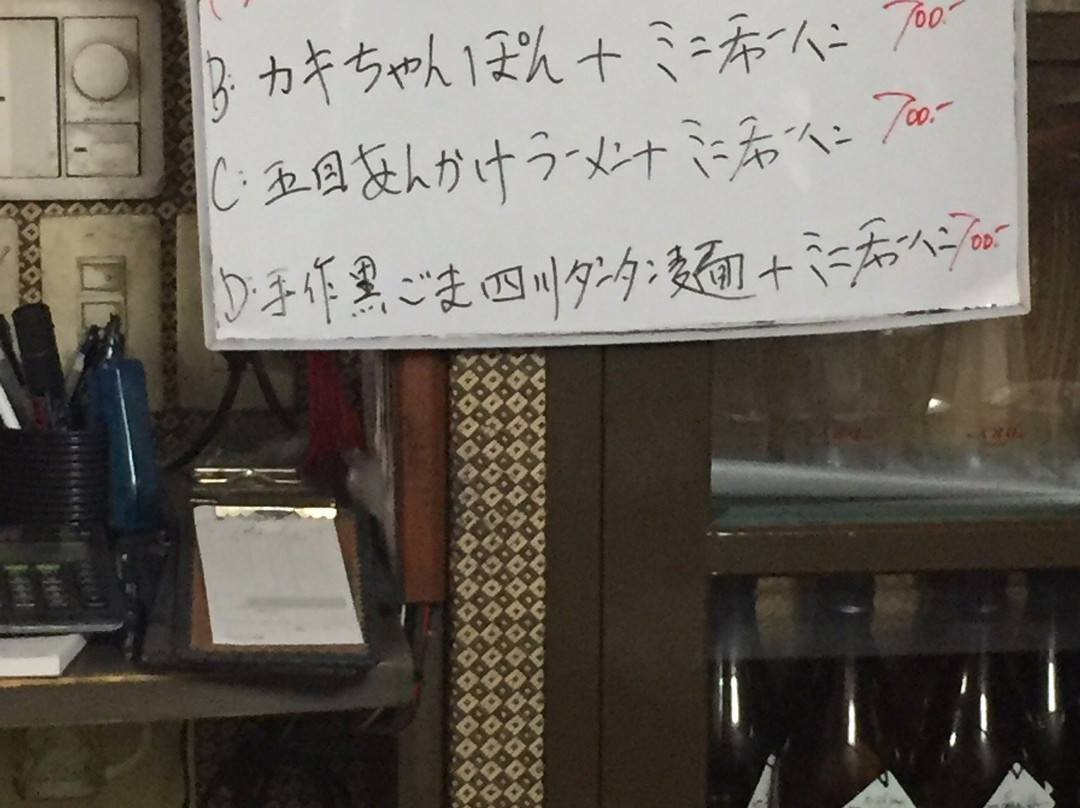 B: カキちゃんぽん + ミニチャーハン 700.-
C: 五目あんかけラーメン+ ミニチャーハン 700.-
D: 手作黒ごま四川タンタン麺 + ミニチャーハン 700.-